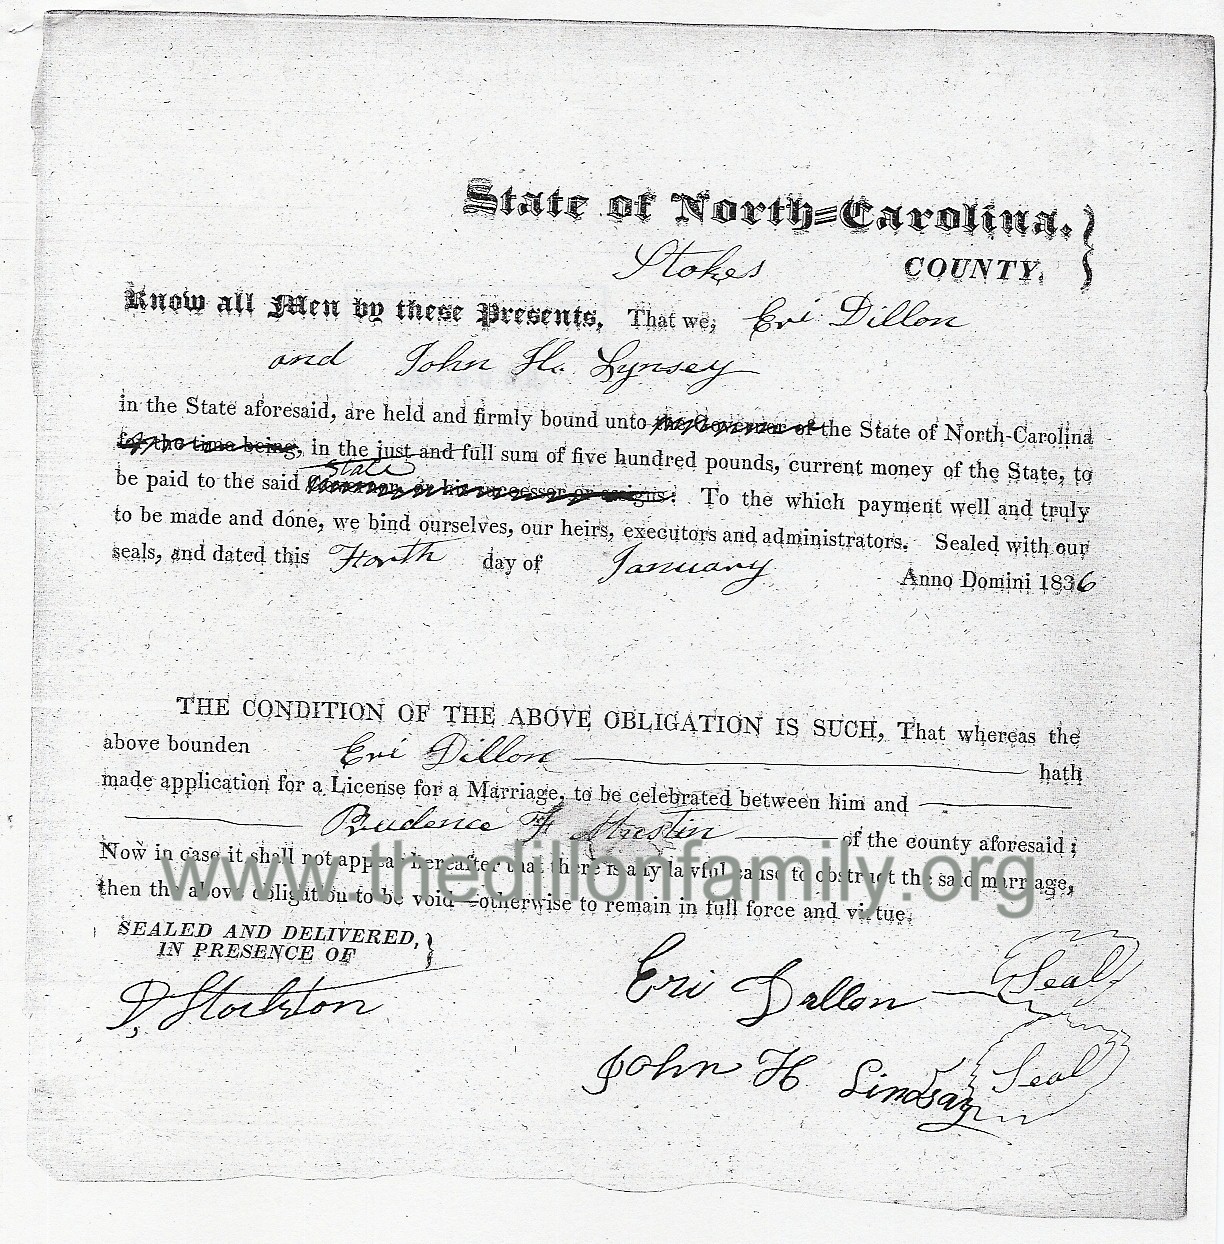 State of North-Carolina.
Stokes COUNTY.
Know all Men by these Presents, That we, Eri Dillon
and John H. Lynsey
in the State aforesaid, are held and firmly bound unto the Governor of the State of North-Carolina
for the time being, in the just and full sum of five hundred pounds, current money of the State, to
State
be paid to the said Governor, or his successor or assigns: To the which payment well and truly
to be made and done, we bind ourselves, our heirs, executors and administrators. Sealed with our
seals, and dated this Forth day of January Anno Domini 1836
THE CONDITION OF THE ABOVE OBLIGATION IS SUCH, That whereas the
above bounden Eri Dillon hath
made application for a License for a Marriage, to be celebrated between him and
Prudence F of the county aforesaid:
Now in case it shall not appear hereafter that there is any lawful cause to obstruct the said marriage,
www.thedillonfamily.org
then the above obligation to be void—otherwise to remain in full force and virtue.
SEALED AND DELIVERED,
IN PRESENCE OF
Eri Dillon Seal
Stockton
John H Lindsay Seal